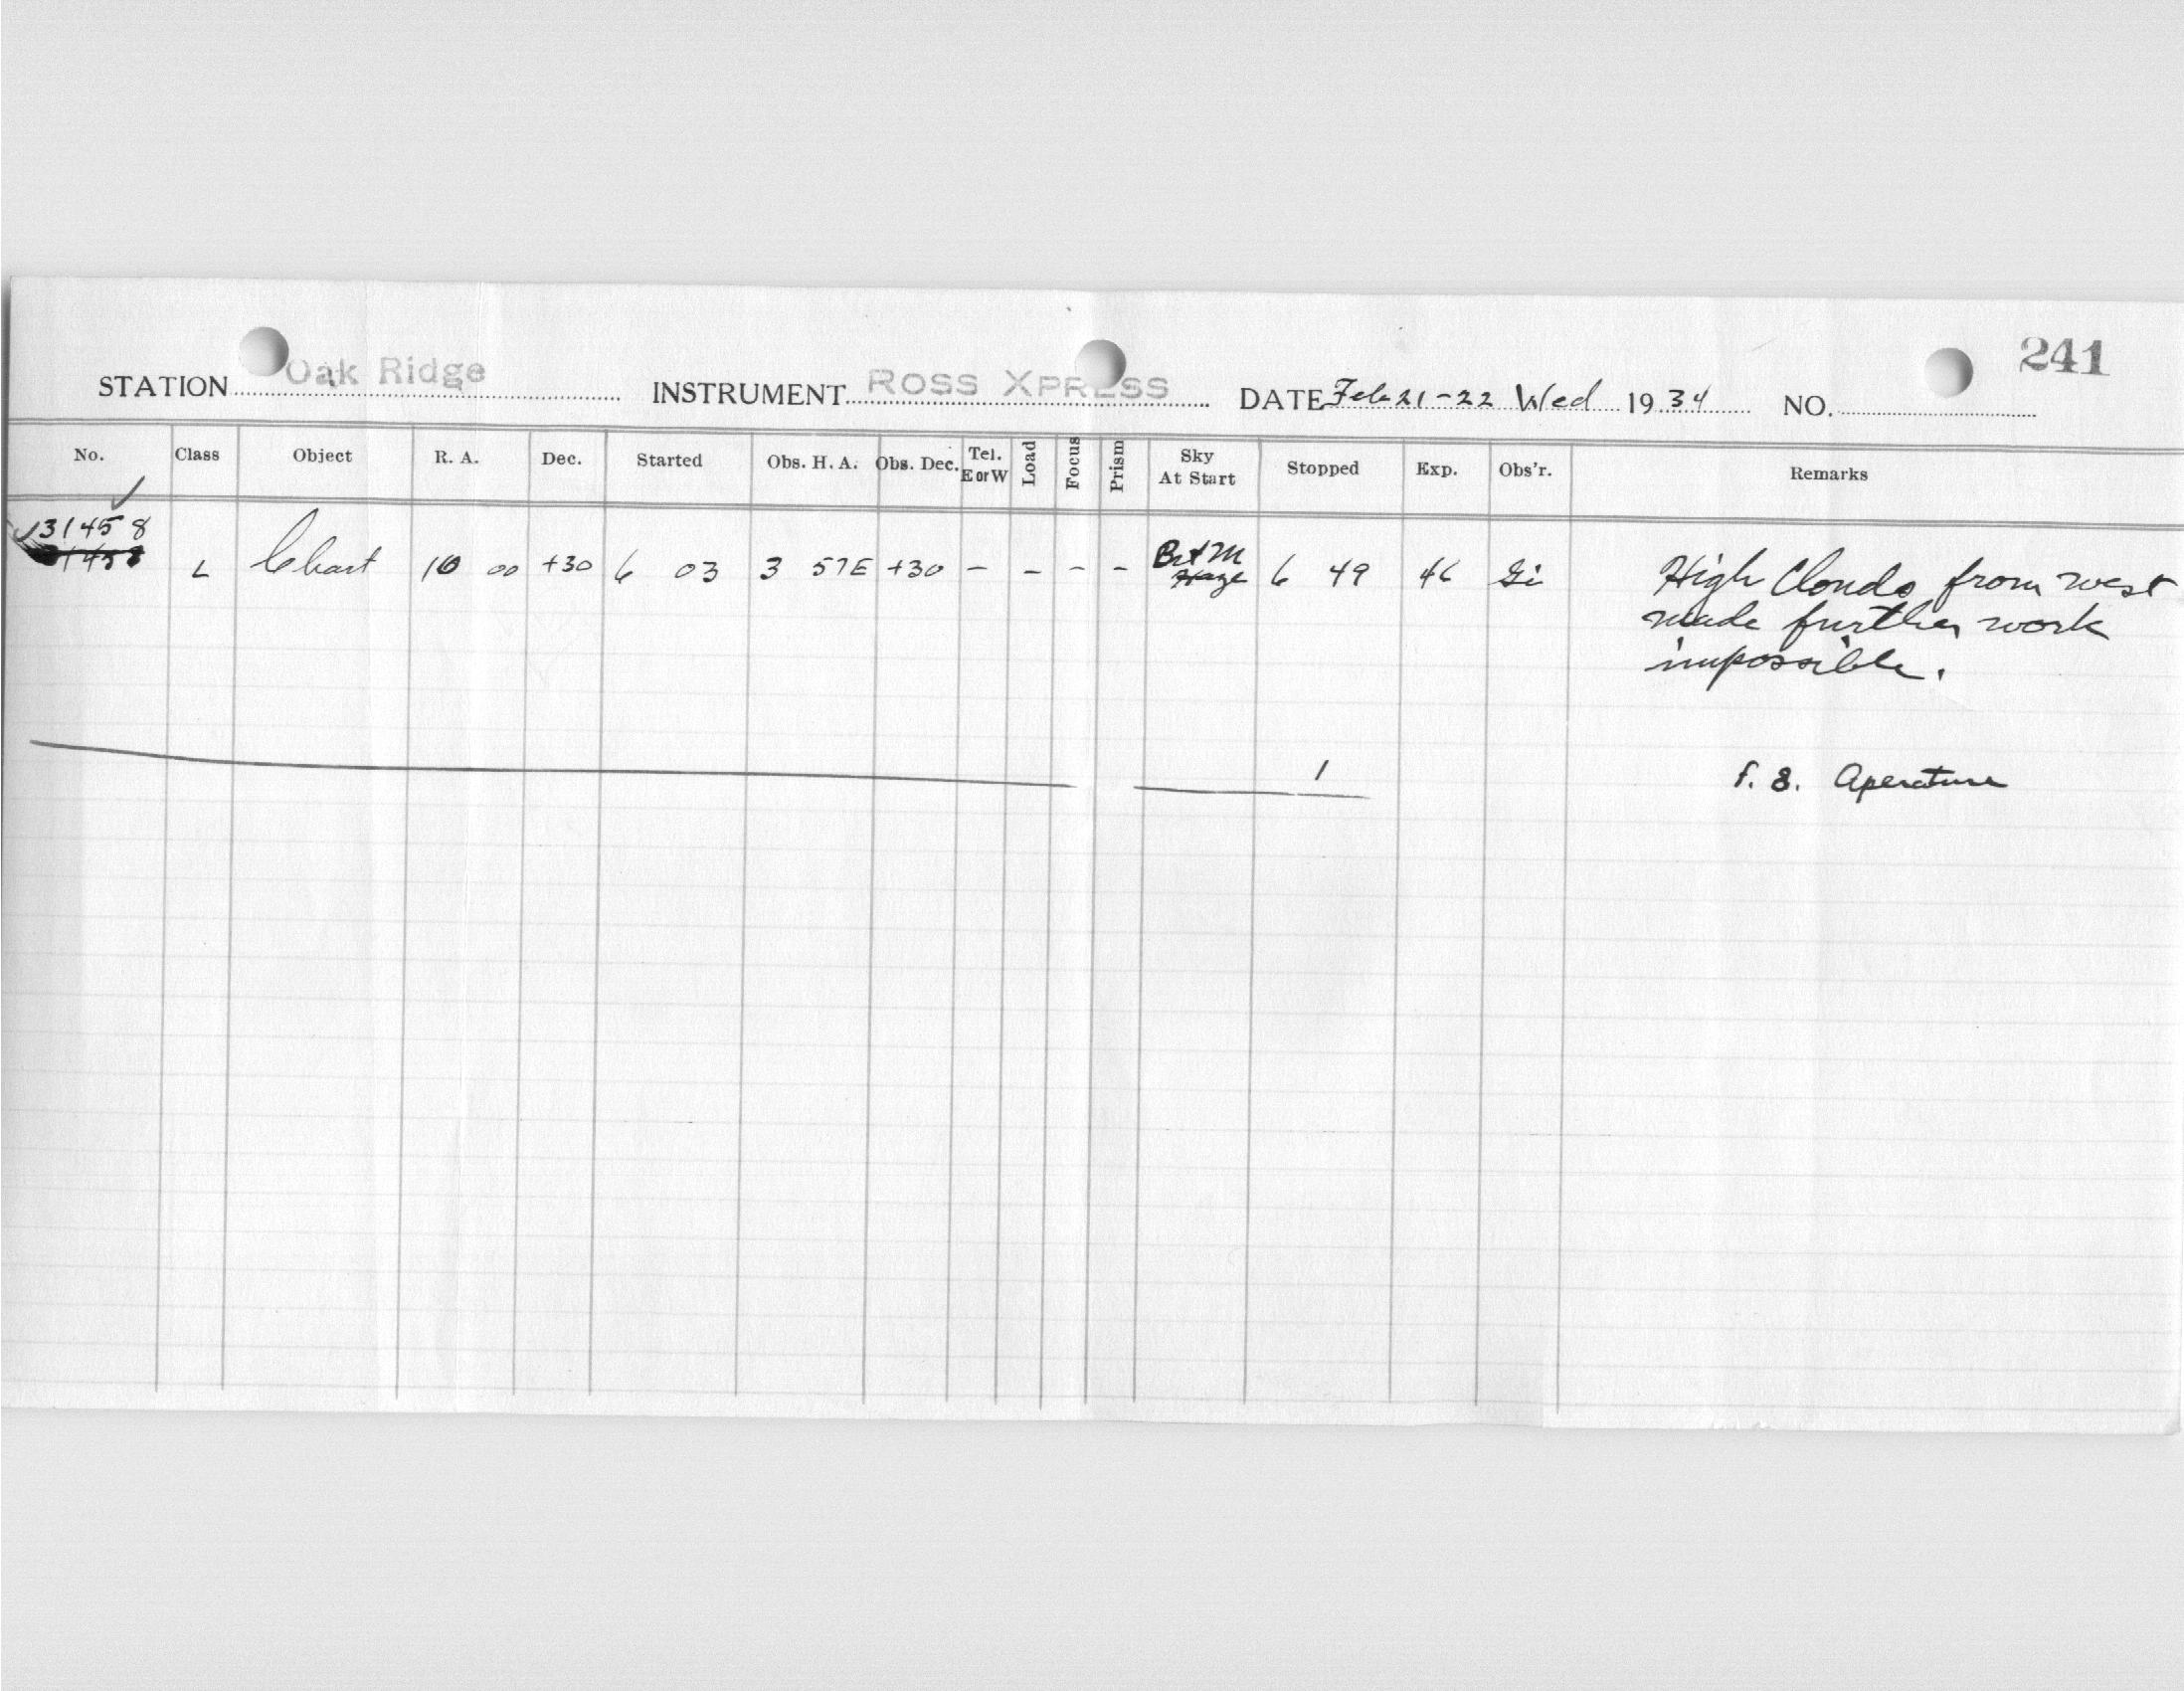 241
STATION Oak Ridge INSTRUMENT ROSS XPRESS DATE Feb 21-22 Wed 1934 NO.
No. Class Object R. A. Dec. Started Obs. H. A. Obs. Dec. Tel. E or W Load Focus Prism Sky At Start Stopped Exp. Obs'r. Remarks
31458
31458 L Chart 10 00 +30 6 03 3 57E +30 - - - - Brt M Haze 6 49 46 Gi High Clouds from west
made further work
impossible.
1 f. 8. Aperature